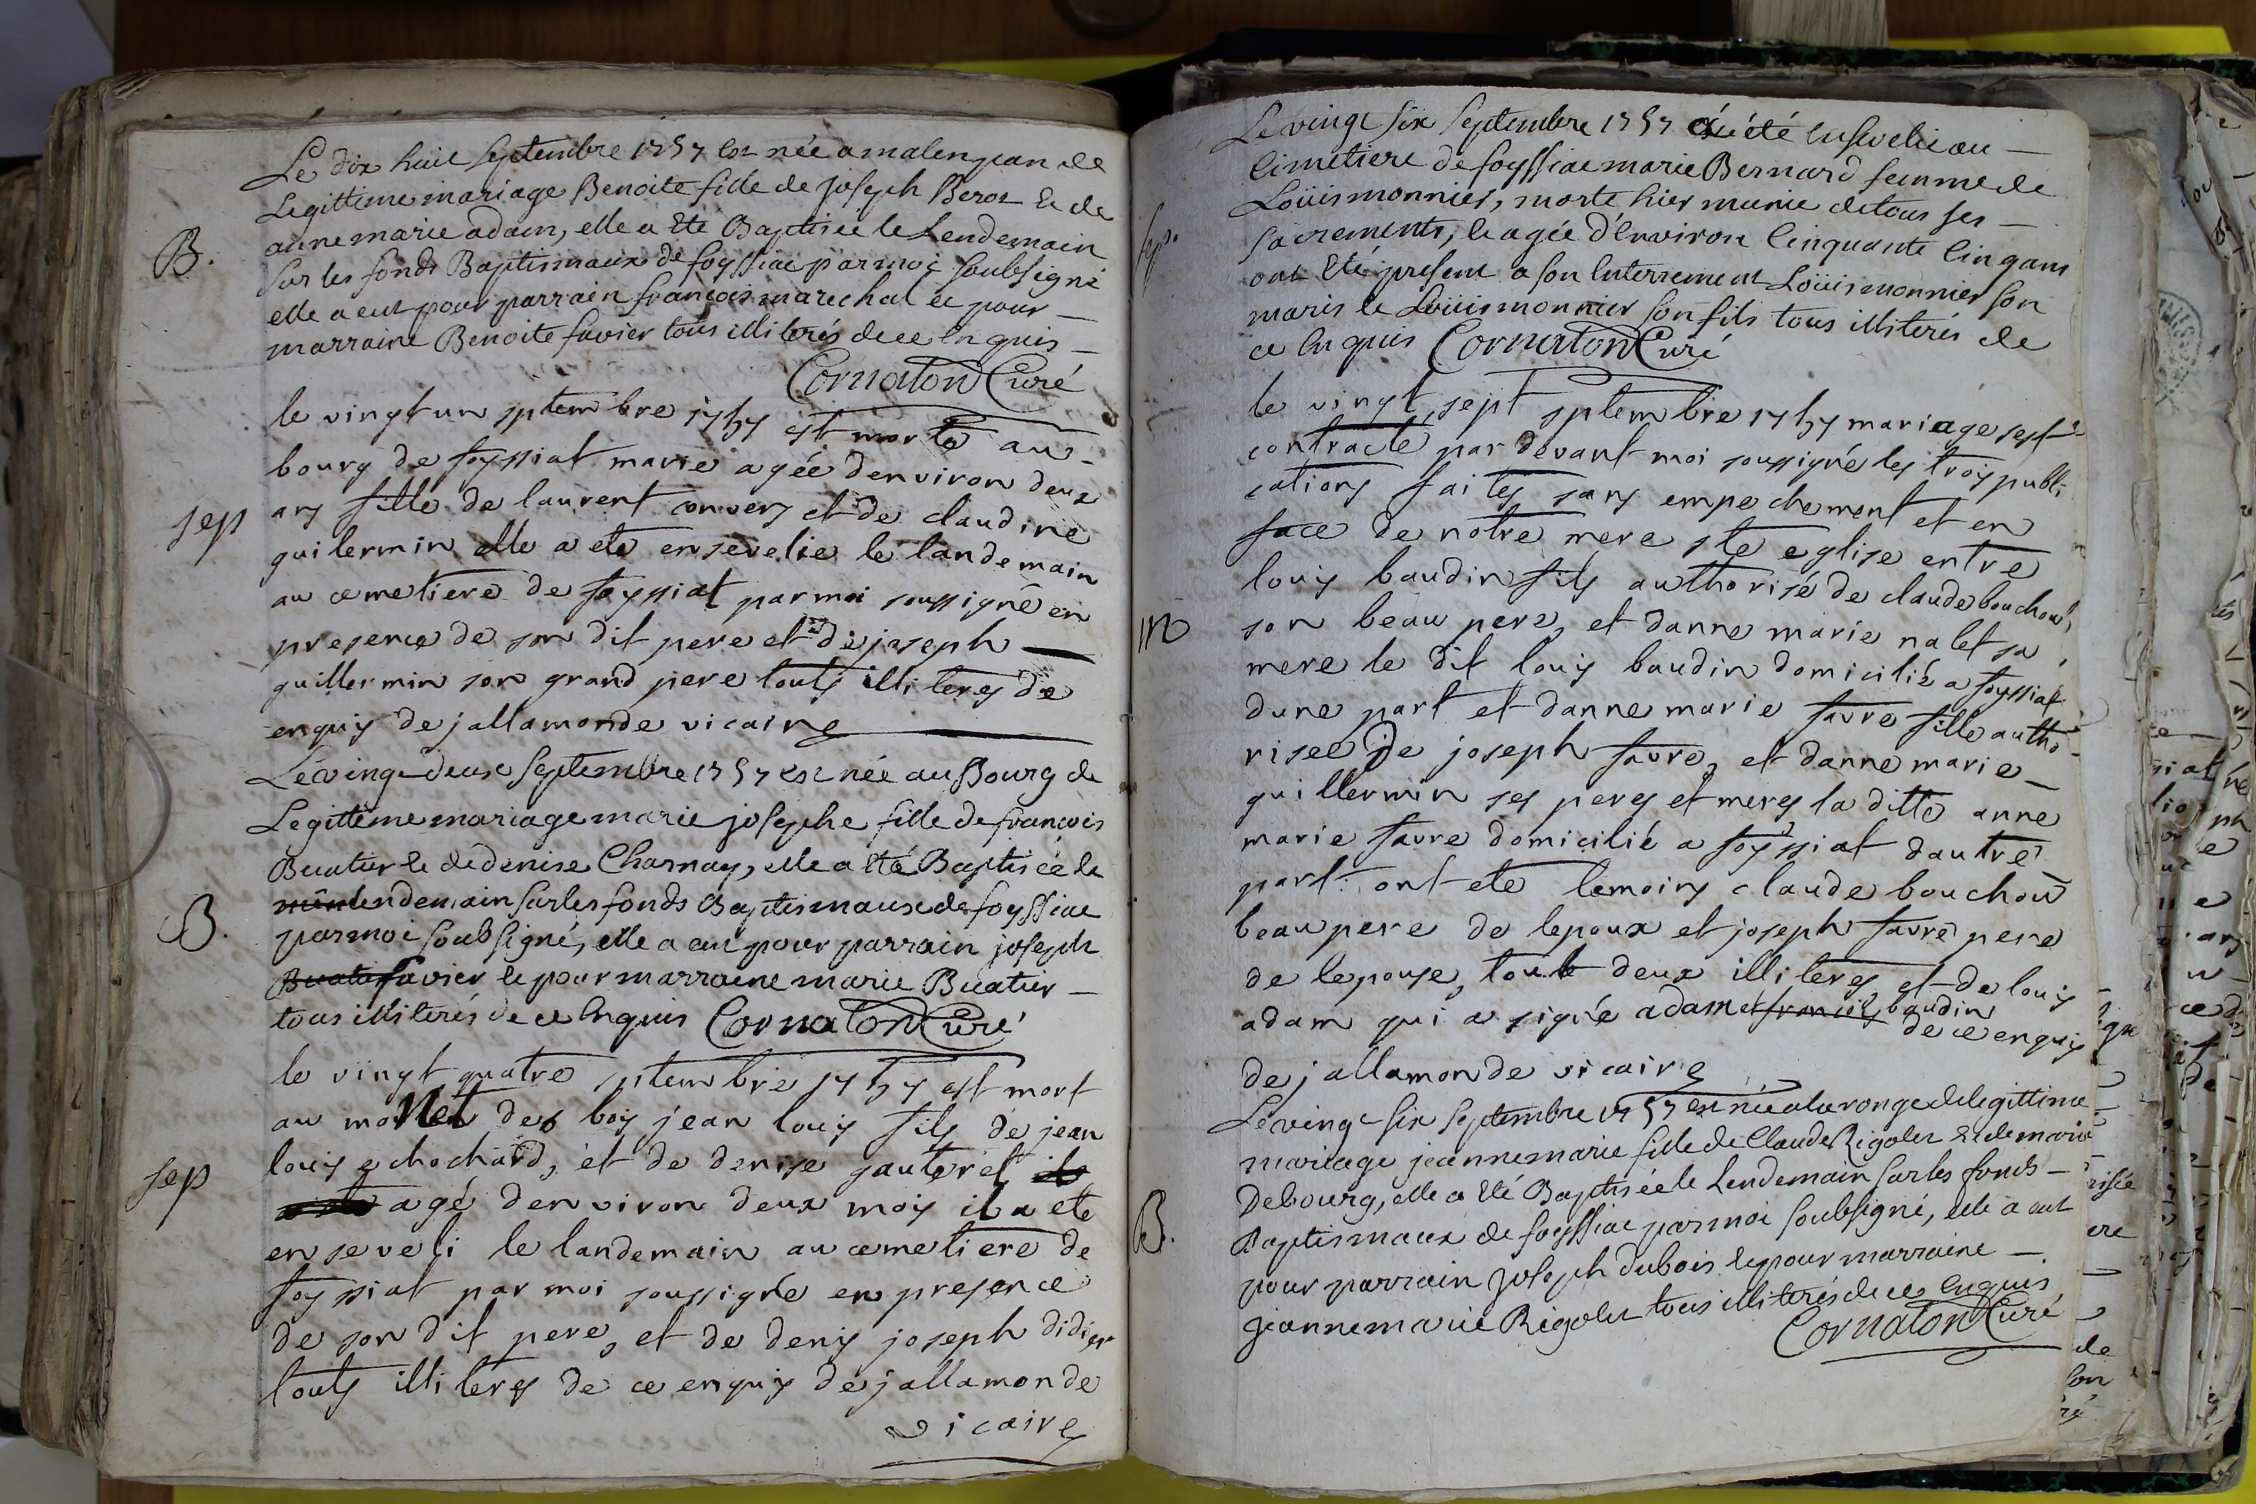 Le dix huit Septembre 1757 est née a malenjean de
Legittime mariage Benoite fille de joseph Berot et de
anne marie adam, elle a eté Baptisée le Lendemain
B.
Sur les fonds Baptismaux de foyssiac par moi soubsigné
elle a eut pour parrain francois marechal et pour
marraine Benoite favier tous illiterés de ce Enquis
Cornaton Curé
le vingt un sptembre 1757 est morte au
bourg de foyssiat marie agée denviron deux
ans fille de laurent convers et de claudine
sep
guilermin elle a ete ensevelie le landemain
au cemetiere de foyssiat par moi soussigné en
presence de son dit pere et de joseph
guillermin son grand pere touts illiteres de
enquis dejallamonde vicaire
Le vingt deux Septembre 1757 est née au Bourg de
Legittime mariage marie josephe fille de francois
Buatier et de denise Charnay, elle a eté Baptisée le
lendemain sur les fonds Baptismaux de foyssiac
B.
par moi soubsigné, elle a eut pour parrain joseph
Buatier favier et pour marraine marie Buatier
tous illiterés de ce Enquis Cornaton Curé
le vingt quatre sptembre 1757 est mort
au mollet des bois jean louis fils de jean
louis echochard, et de denise gauteret
sep
agé denviron deux mois il a ete
enseveli le landemain au cemetiere de
foyssiat par moi soussigné en presence
de son dit pere, et de denis joseph didier
touts illiteres de ce enquis dejallamonde
vicaire
Le vingt six Septembre 1757 a été Ensevelie au
Cimetiere de foyssiac marie Bernard femme de
Loüis monnier, morte hier munie de tous ses
sep.
sacrements, et agée d'Environ Cinquante Cinq ans
ont Eté present a son Enterrement Loüis monnier son
maris et Loüis monnier son fils tous illiterés de
ce Enquis Cornaton Curé
le vingt sept sptembre 1757 mariage sest
contracté par devant moi soussigné les trois publi
cations faites sans empechement et en
face de notre mere ste eglise entre
louis baudin fils authorisé de claude bouchoux
m
son beau pere, et danne marie nalet sa
mere le dit louis baudin domicilié a foyssiat
dune part et danne marie favre fille autho-
risee de joseph favre, et danne marie
guillermin ses peres et meres la ditte anne
marie favre domicilié a foyssiat dautre
part: ont ete temoins claude bouchou
beaupere de lepoux et joseph favre pere
de lepouse, tout deux illiteres et de louis
adam qui a signé adam et francois baudin
de ce enquis
dejallamonde vicaire
Le vingt six septembre 1757 est née a la ronge de legittime
mariage jeanne marie fille de Claude Rigolet et de marie
Debourg, elle a Eté Baptisée le Lendemain sur les fonds
B.
Baptismaux de foyssiac par moi soubsigné, elle a eut
pour parrain joseph dubois et pour marraine
jeanne marie Rigolet tous illiterés de ce Enquis
Cornaton Curé